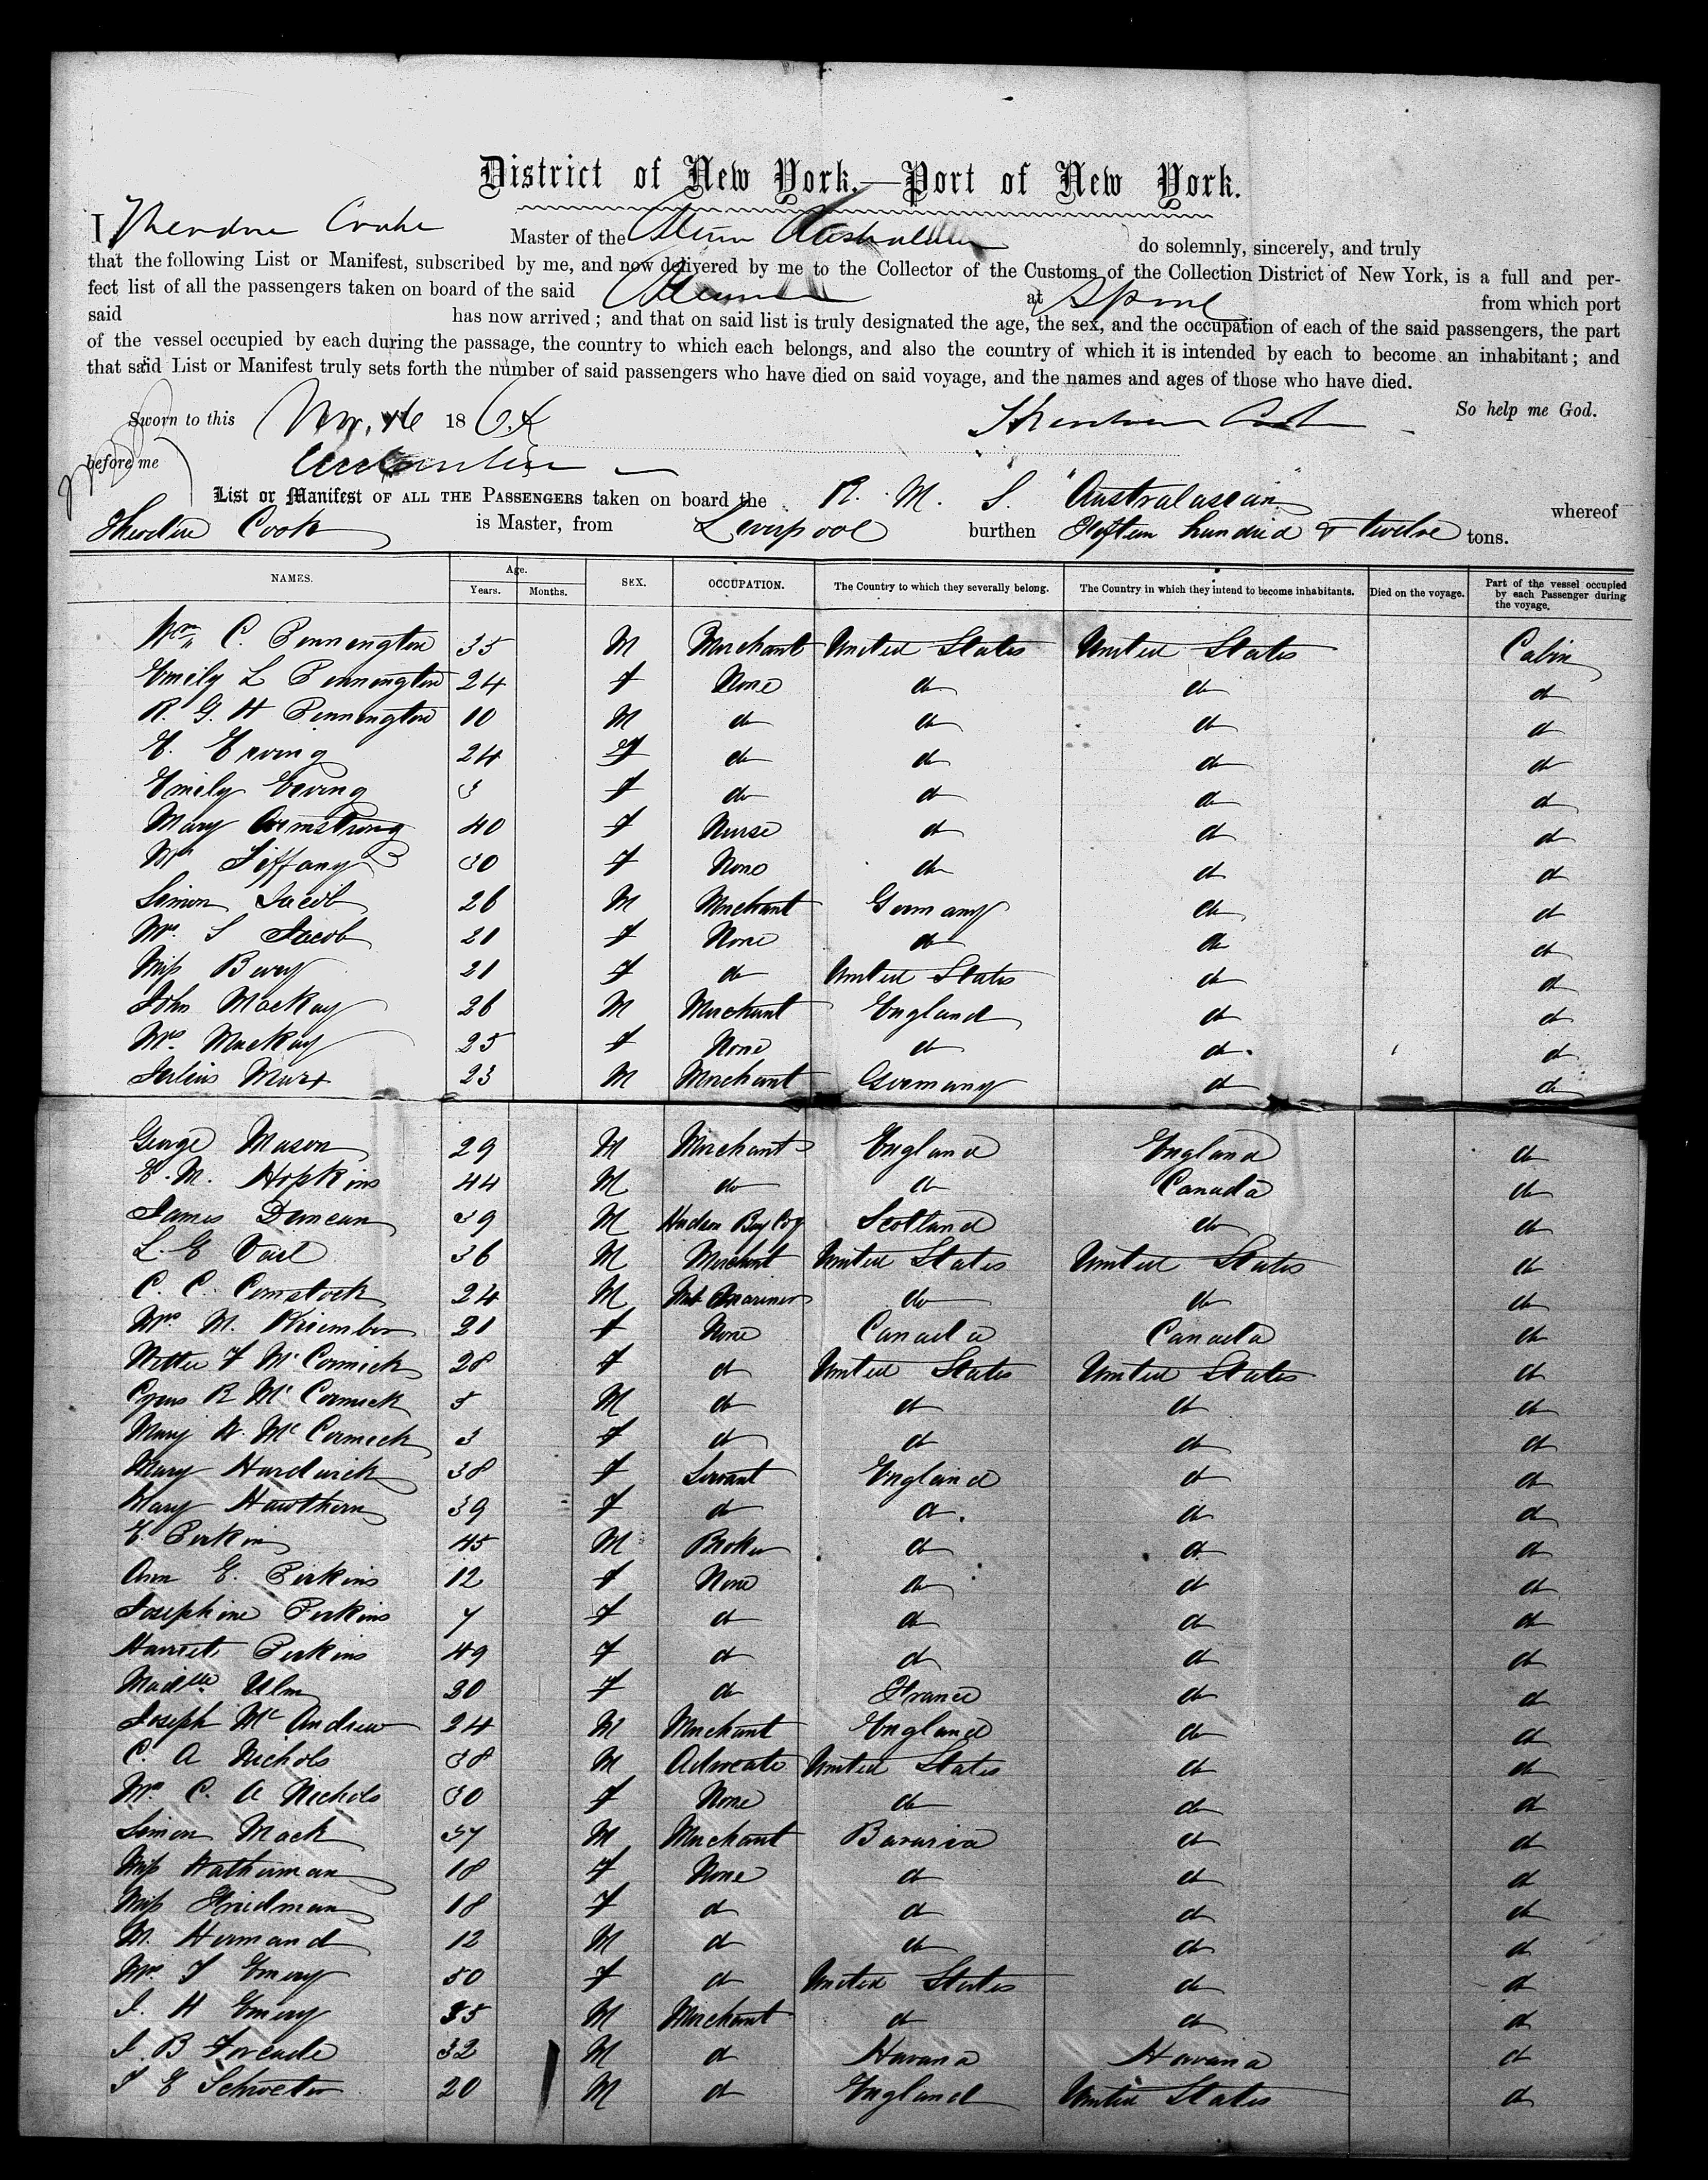 District of New York,—Port of New York.
I, Theodore Cook Master of the Steamer Australasian do solemnly, sincerely, and truly
that the following List or Manifest, subscribed by me, and now delivered by me to the Collector of the Customs of the Collection District of New York, is a full and per-
fect list of all the passengers taken on board of the said Steamer at Lpool from which port
said has now arrived; and that on said list is truly designated the age, the sex, and the occupation of each of the said passengers, the part
of the vessel occupied by each during the passage, the country to which each belongs, and also the country of which it is intended by each to become an inhabitant; and
that said List or Manifest truly sets forth the number of said passengers who have died on said voyage, and the names and ages of those who have died.
Sworn to this Nov. 16 1864 So help me God.
Theodore Cook
before me
List or Manifest OF ALL THE PASSENGERS taken on board the R. M. S. "Australasian" whereof
Theodore Cook is Master, from Liverpool burthen Fifteen hundred & twelve tons.
NAMES. Age. Years. Months. SEX. OCCUPATION. The Country to which they severally belong. The Country in which they intend to become inhabitants. Died on the voyage. Part of the vessel occupied by each Passenger during the voyage.
Wm C. Pennington 35 M Merchant United States United States Cabin
Emily L Pennington 24 f None do do do
R. G. H Pennington 10 M do do do do
E. Erving 24 f do do do do
Emily Erving 3 f do do do do
Mary Armstrong 40 f Nurse do do do
Mrs Tiffany 30 f None do do do
Simon Jacob 26 M Merchant Germany do do
Mrs. S Jacob 21 f None do do do
Miss 21 f do United States do do
John MacKay 26 M Merchant England do do
Mrs. MacKay 25 f None do do do
Julius Marx 23 M Merchant Germany do do
George Mason 29 M Merchant England England do
E. M. Hopkins 44 M do do Canada do
James Duncan 39 M Hudson Bay Coy Scotland do do
L. E Vail 36 M Merchant United States United States do
C. C. Comstock 24 M Mariner do do do
Mrs M. 21 f None Canada Canada do
Nettie F McCormick 28 f do United States United States do
Cyrus R McCormick 5 M do do do do
Mary V. McCormick 3 f do do do do
Mary Hardwick 38 f Servant England do do
Mary Hawthorn 39 f do do do do
E. Perkins 45 M Broker do do do
Ann E. Perkins 12 f None do do do
Josephine Perkins 7 f do do do do
Harriet Perkins 49 f do do do do
Madlle Ulm 20 f do France do do
Joseph McAndrew 24 M Merchant England do do
C. A Nichols 38 M Advocate United States do do
Mrs C. A Nichols 30 f None do do do
Simon Mack 37 M Merchant Bavaria do do
Miss Watherman 18 f None do do do
Miss Friedman 18 f do do do do
M. Hermand 12 M do do do do
Mrs. J Emery 50 f do United States do do
J. H Emery 35 M Merchant do do do
J. B Forcade 32 M do Havana Havana do
J E Schroeter 20 M do England United States do